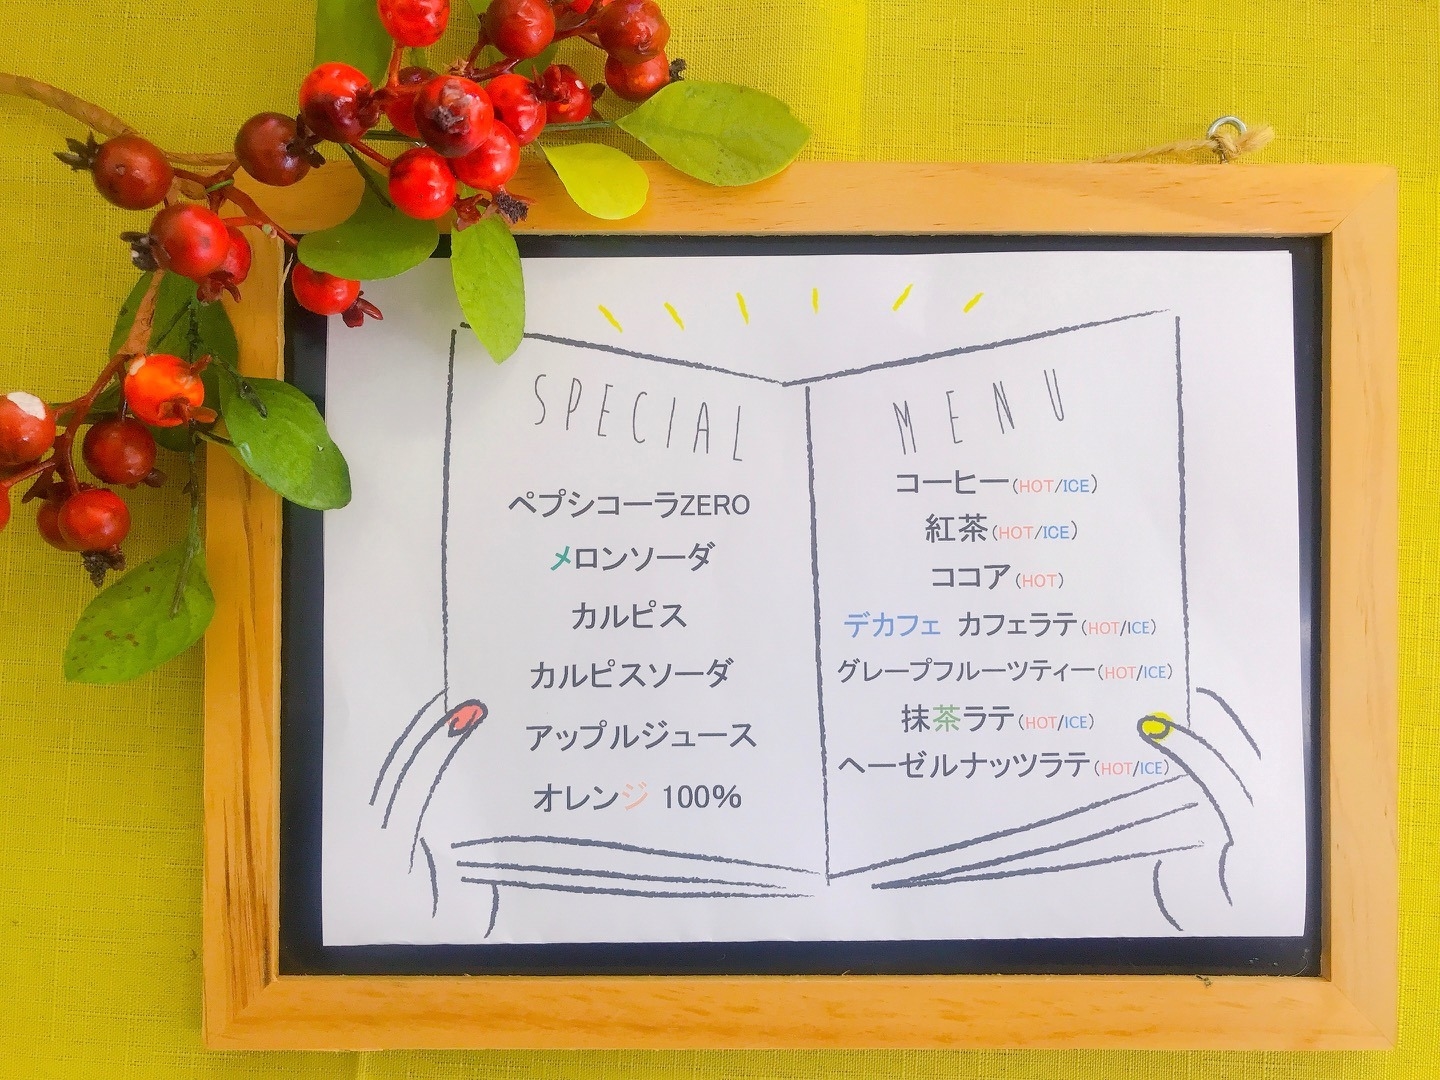 SPECIAL
ペプシコーラZERO
メロンソーダ
カルピス
カルピスソーダ
アップルジュース
オレンジ 100%
MENU
コーヒー(HOT/ICE)
紅茶(HOT/ICE)
ココア(HOT)
デカフェ カフェラテ(HOT/ICE)
グレープフルーツティー(HOT/ICE)
抹茶ラテ(HOT/ICE)
ヘーゼルナッツラテ(HOT/ICE)